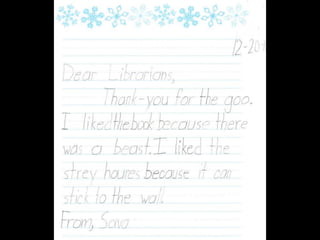 12-20-
Dear Librarians,
Thank-you for the goo.
I liked the book because there
was a beast. I liked the
strey houres because it can
stick to the wall
From, Sava